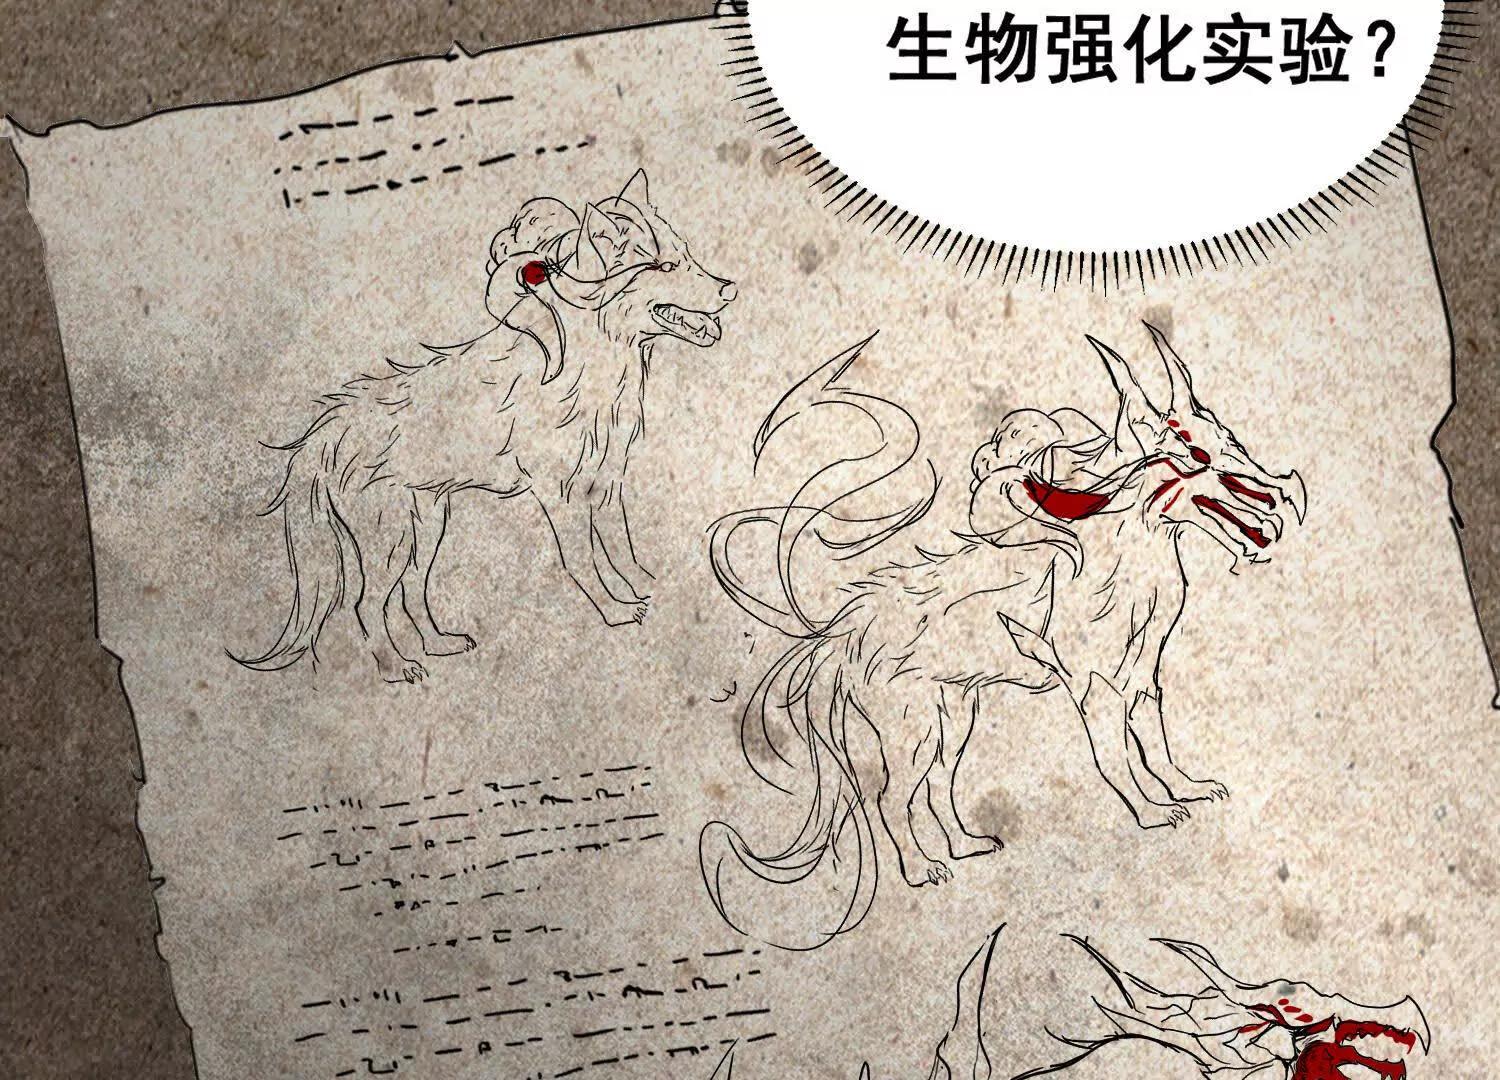 生物强化实验？